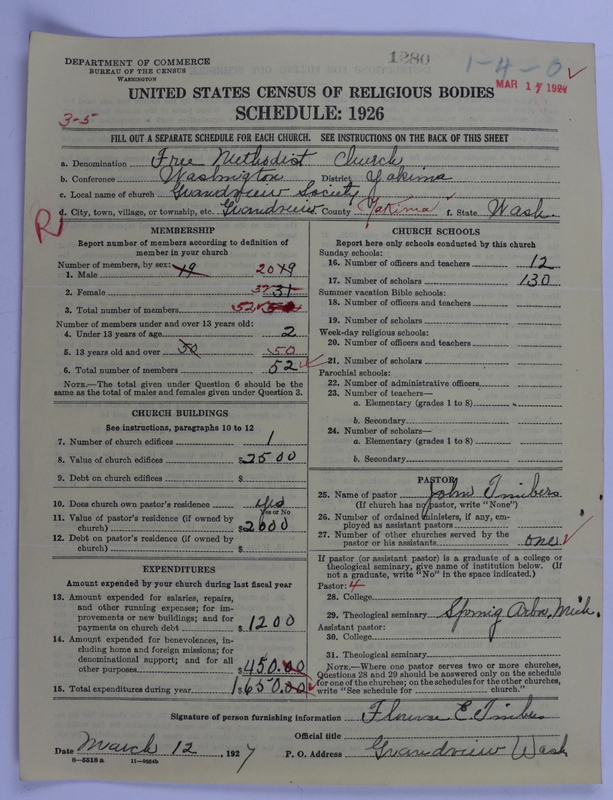 DEPARTMENT OF COMMERCE
BUREAU OF THE CENSUS
WASHINGTON
1280
1-4-0
MAR 17 1927
UNITED STATES CENSUS OF RELIGIOUS BODIES
SCHEDULE: 1926
3-5
FILL OUT A SEPARATE SCHEDULE FOR EACH CHURCH. SEE INSTRUCTIONS ON THE BACK OF THIS SHEET
a. Denomination Free Methodist Church
b. Conference Washington District Yakima
c. Local name of church Grandview Society
d. City, town, village, or township, etc. Grandview County Yakima f. State Wash.
R
MEMBERSHIP
Report number of members according to definition of
member in your church
Number of members, by sex:
1. Male 19 20
2. Female 31
3. Total number of members 52
Number of members under and over 13 years old:
4. Under 13 years of age 2
5. 13 years old and over 50 50
6. Total number of members 52
NOTE.—The total given under Question 6 should be
same as the total of males and females given under Question 3.
CHURCH BUILDINGS
See instructions, paragraphs 10 to 12
7. Number of church edifices 1
8. Value of church edifices $2500
9. Debt on church edifices $
10. Does church own pastor's residence yes
Yes or No
11. Value of pastor's residence (if owned by
church) $2000
12. Debt on pastor's residence (if owned by
church) $
EXPENDITURES
Amount expended by your church during last fiscal year
13. Amount expended for salaries, repairs,
and other running expenses; for im-
provements or new buildings; and for
payments on church debt $1200
14. Amount expended for benevolences, in-
cluding home and foreign missions; for
denominational support; and for all
other purposes $450.00
15. Total expenditures during year 1650.00
CHURCH SCHOOLS
Report here only schools conducted by this church
Sunday schools:
16. Number of officers and teachers 12
17. Number of scholars 130
Summer vacation Bible schools:
18. Number of officers and teachers
19. Number of scholars
Week-day religious schools:
20. Number of officers and teachers
21. Number of scholars
Parochial schools:
22. Number of administrative officers
23. Number of teachers—
a. Elementary (grades 1 to 8)
b. Secondary
24. Number of scholars—
a. Elementary (grades 1 to 8)
b. Secondary
PASTOR
25. Name of pastor John Timbers
(If church has no pastor, write "None")
26. Number of ordained ministers, if any, em-
ployed as assistant pastors
27. Number of other churches served by the
pastor or his assistants one
If pastor (or assistant pastor) is a graduate of a college or
theological seminary, give name of institution below. (If
not a graduate, write "No" in the space indicated.)
Pastor: 4
28. College
29. Theological seminary Spring Arbor, Mich.
Assistant pastor:
30. College
31. Theological seminary
NOTE.—Where one pastor serves two or more churches,
Questions 28 and 29 should be answered only on the schedule
for one of the churches; on the schedules for the other churches,
write "See schedule for church."
Signature of person furnishing information Florence E. Timbers
Official title
Date March 12, 1927 P. O. Address Grandview Wash
8—5518 a